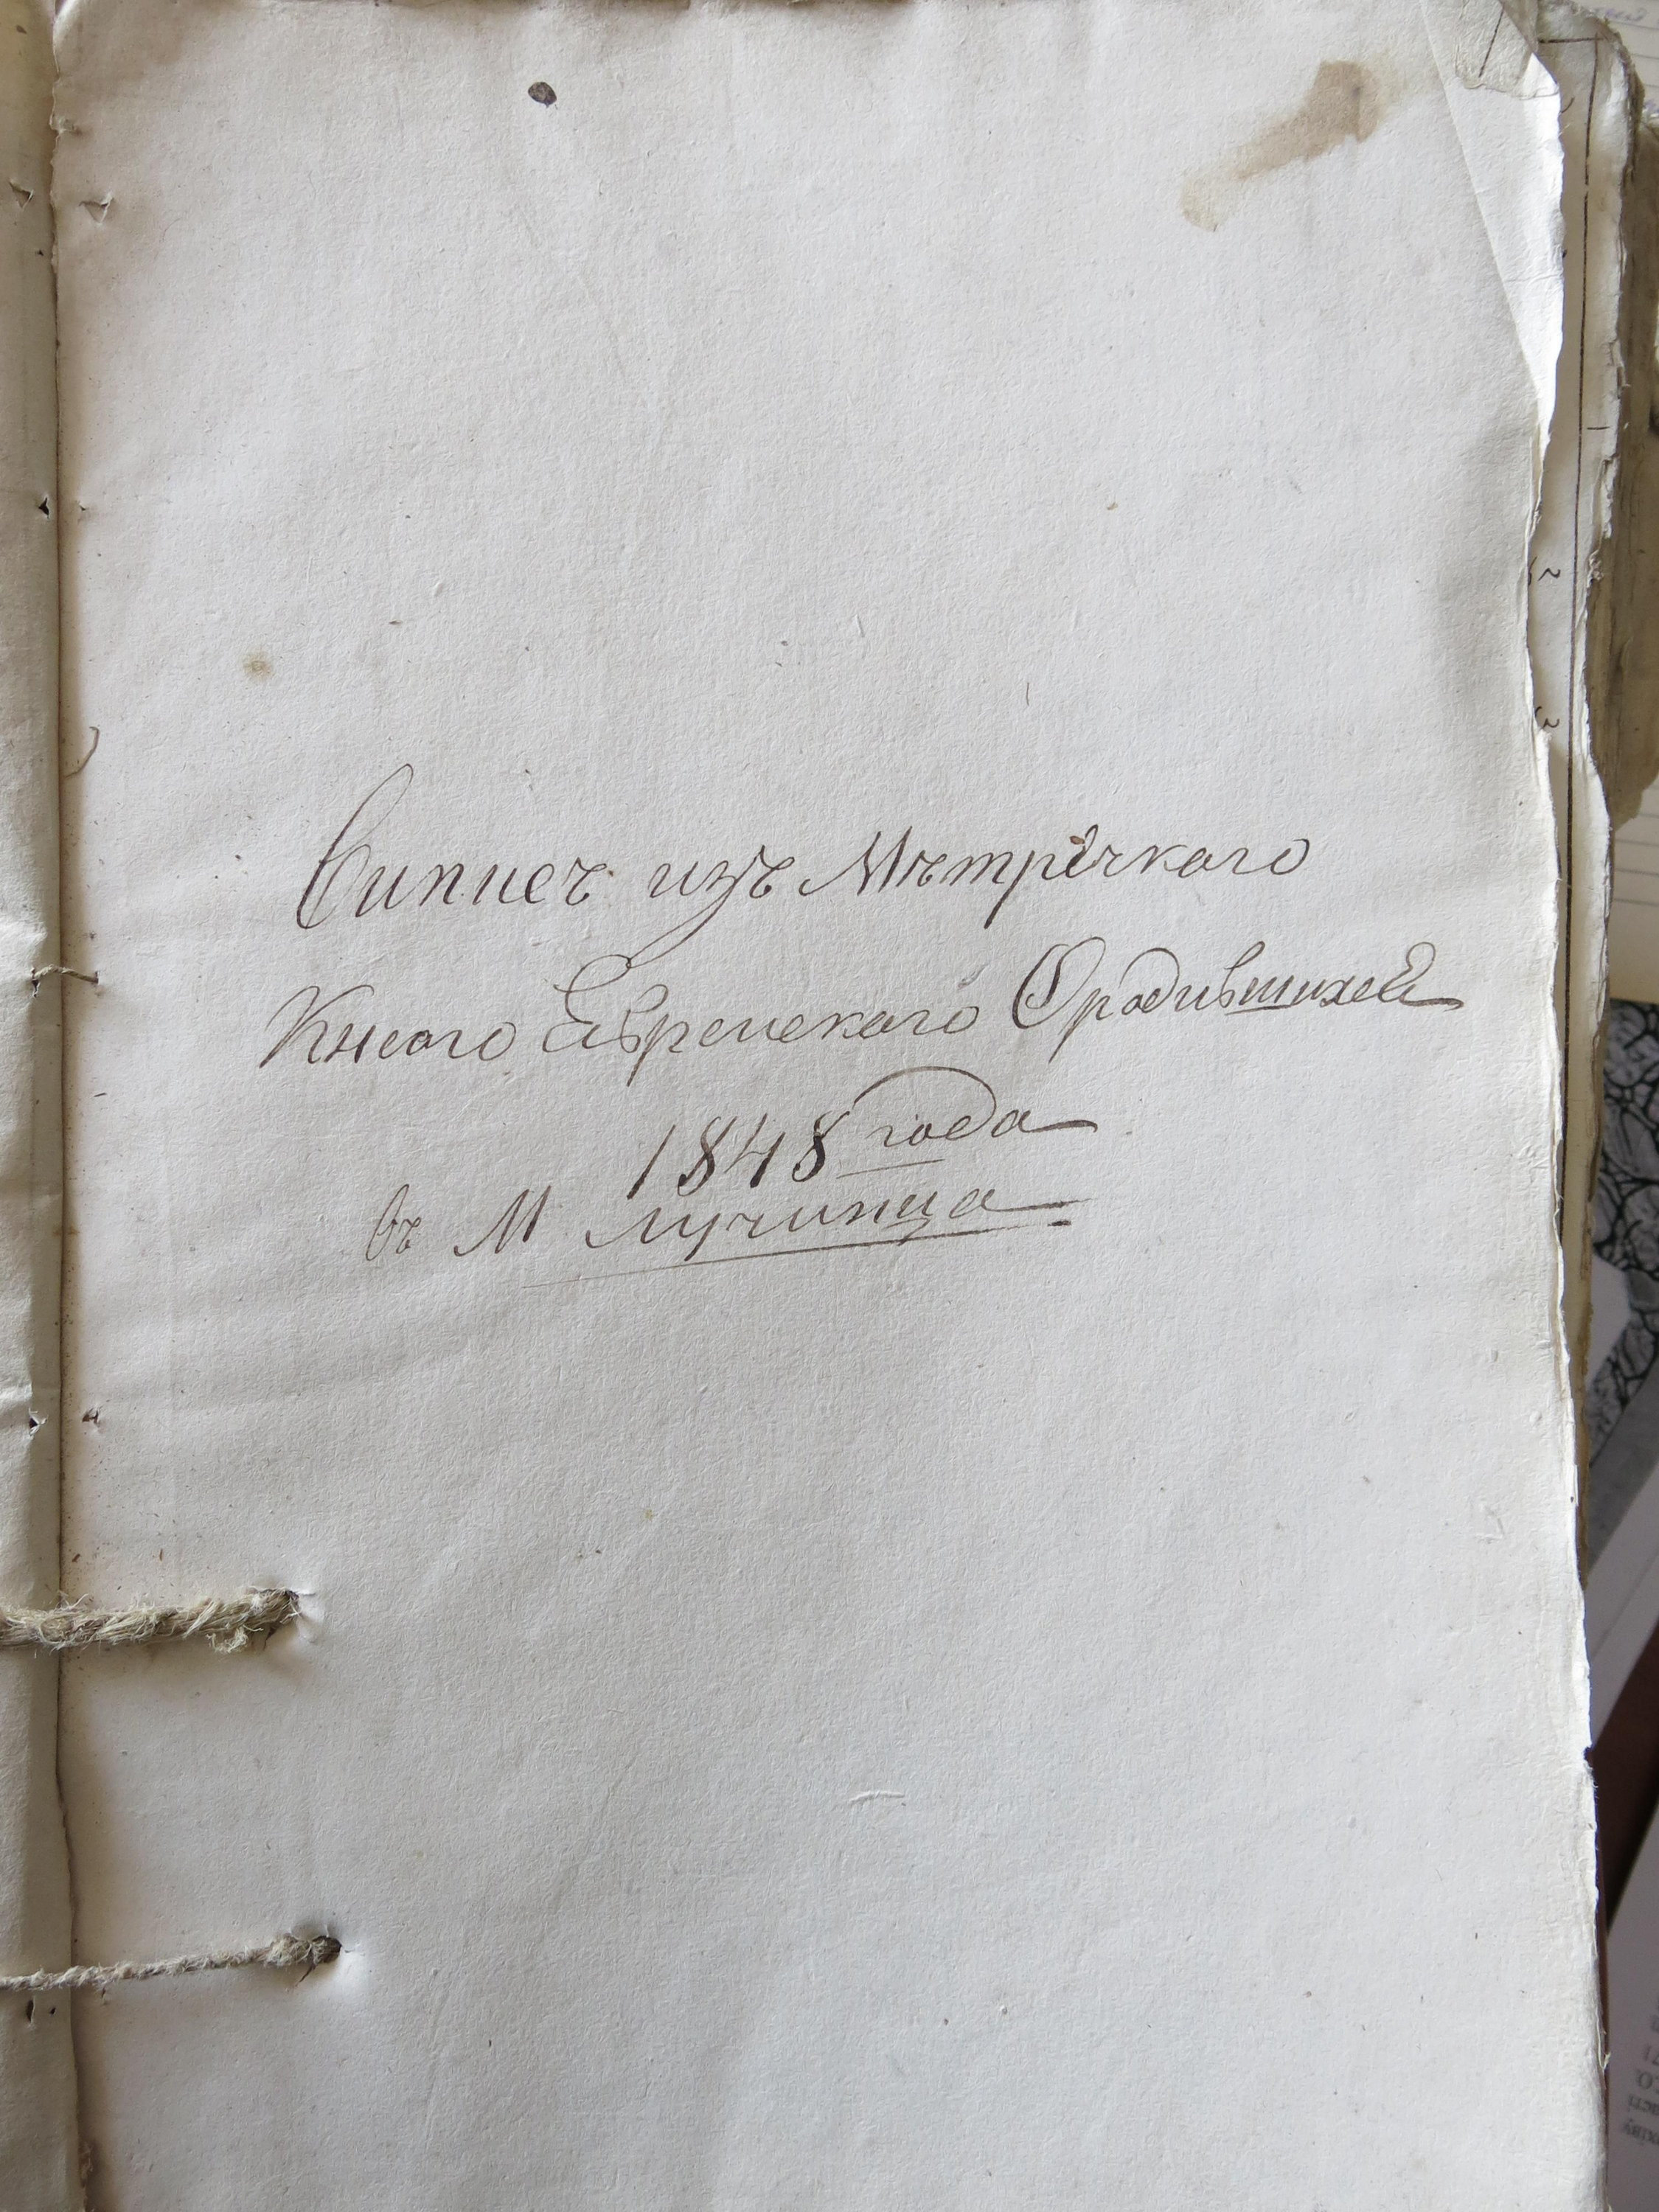 Сипиеч изъ Мѣтрѣчкаго
Кнеаго Еврейскаго Ородившихся
1848 года
въ М Лучинца